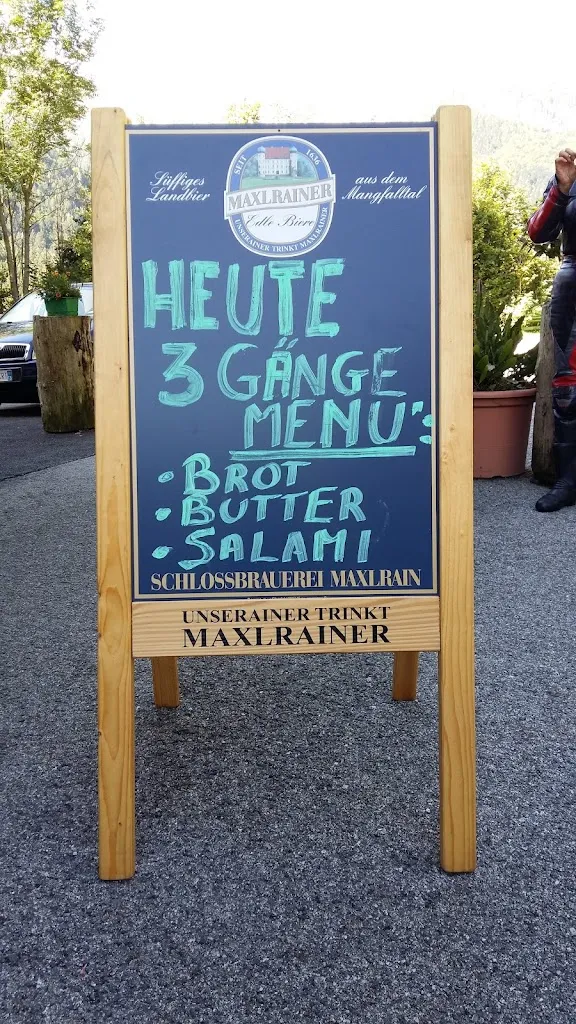 Süffiges
Landbier
aus dem
Mangfalltal
SEIT 1636
MAXLRAINER
Edle Biere
UNSERAINER TRINKT MAXLRAINER
HEUTE
3 GÄNGE
MENU:
• BROT
• BUTTER
• SALAMI
SCHLOSSBRAUEREI MAXLRAIN
UNSERAINER TRINKT
MAXLRAINER